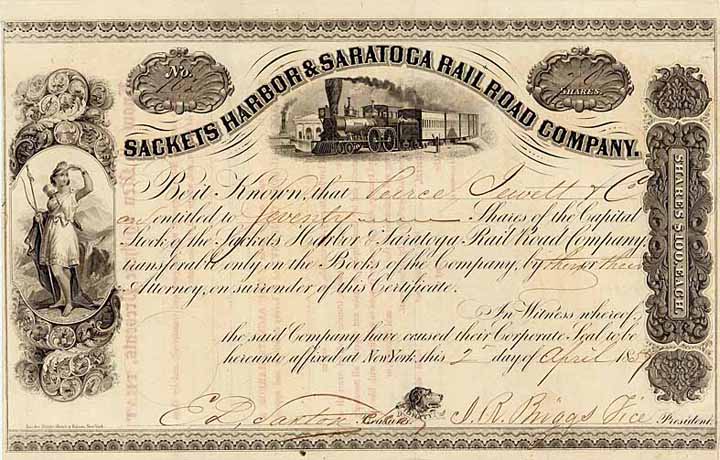 No.
SHARES.
SACKETS HARBOR & SARATOGA RAIL ROAD COMPANY.
Be it Known, that Peirce, Jewett & Co
are entitled to Seventy Shares of the Capital
Stock of the Sackets Harbor & Saratoga Rail Road Company,
transferable only on the Books of the Company, by them or their
Attorney, on surrender of this Certificate.
In Witness whereof,
the said Company have caused their Corporate Seal to be
hereunto affixed at New York, this 2 day of April 185
SHARES $100 EACH.
J. R. Briggs Vice President.